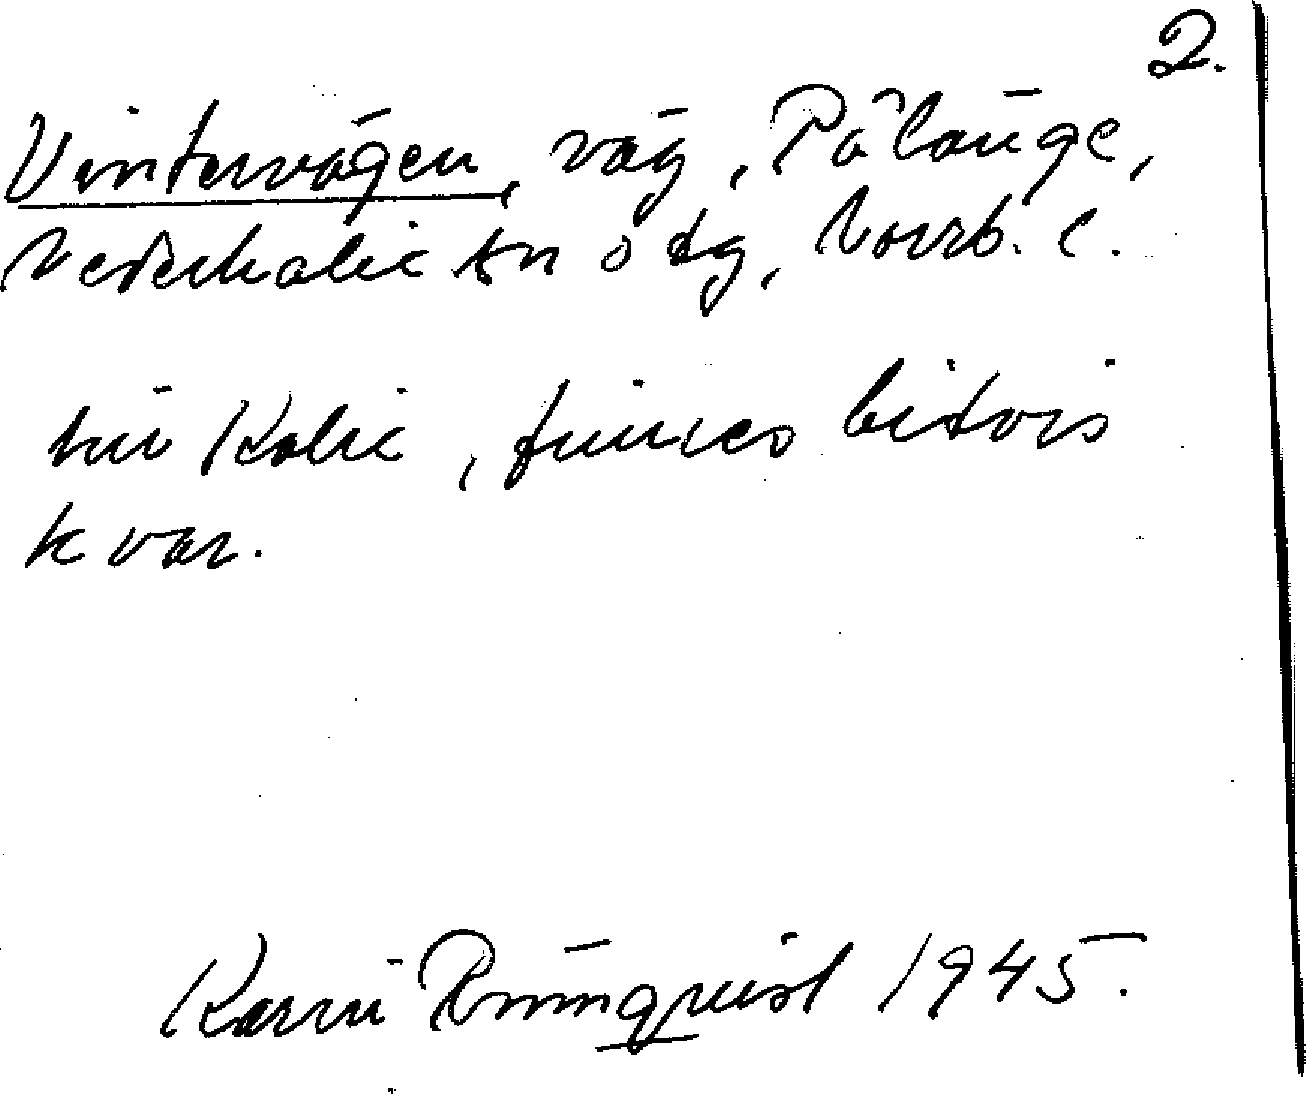 2.
Vintervägen, väg, Pålänge,
Nederkalix sn o tg, Norrb. l.
till Kalix, finnes bitvis
kvar.
Karin Rönnquist 1945.